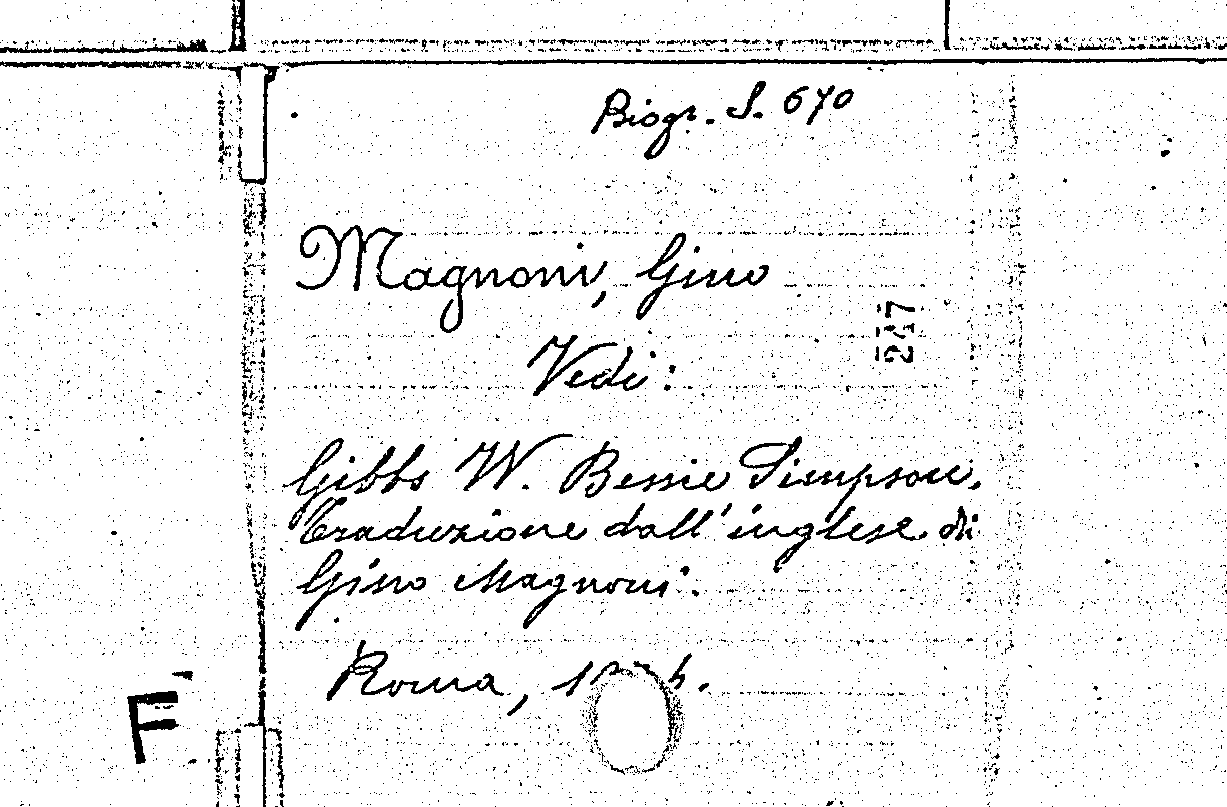 Biogr. S. 670
Magnoni, Gino
247
Vedi:
Gibbs W. Bessie Simpson.
Traduzione dall'inglese di
Gino Magnoni.
Roma,
F